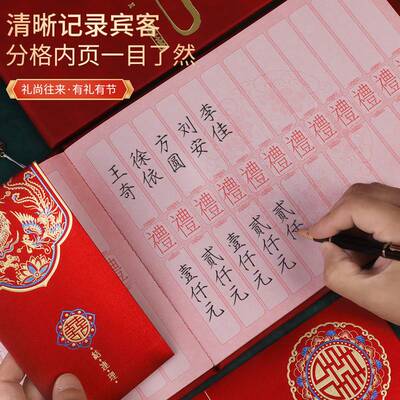 清晰记录宾客
分格内页一目了然
礼尚往来·有礼有节
李佳
刘安
方圓
徐依
王奇
禮禮禮禮禮禮禮禮禮
貳仟
貳仟元
壹仟元
貳仟元
壹仟元
囍
結連理
囍